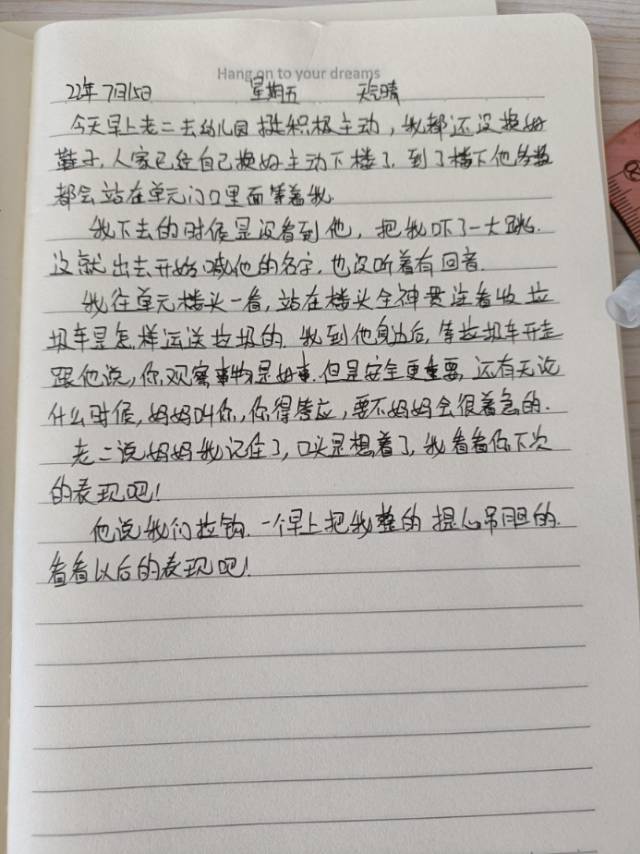 Hang on to your dreams
22年7月15日 星期五 天气晴
今天早上老二去幼儿园挺积极主动，我都还没换好
鞋子，人家已经自己换好主动下楼了，到了楼下他多数
都会站在单元门口里面等着我.
我下去的时候是没看到他，把我吓了一大跳.
这就出去开始喊他的名字，也没听着有回音.
我往单元楼头一看，站在楼头全神贯注看收垃
圾车是怎样运送垃圾的.我到他身边后，等垃圾车开走
跟他说，你观察事物是好事.但是安全更重要，还有无论
什么时候，妈妈叫你，你得答应，要不妈妈会很着急的.
老二说妈妈我记住了，口头是想着了，我看看你下次
的表现吧！
他说我们拉钩.一个早上把我整的提心吊胆的.
看看以后的表现吧！